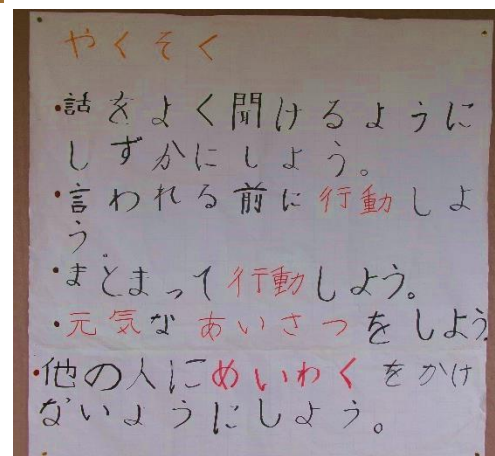 やくそく
・話をよく聞けるように
しずかにしよう。
・言われる前に行動しよ
う。
・まとまって行動しよう。
・元気なあいさつをしよう
・他の人にめいわくをかけ
ないようにしよう。